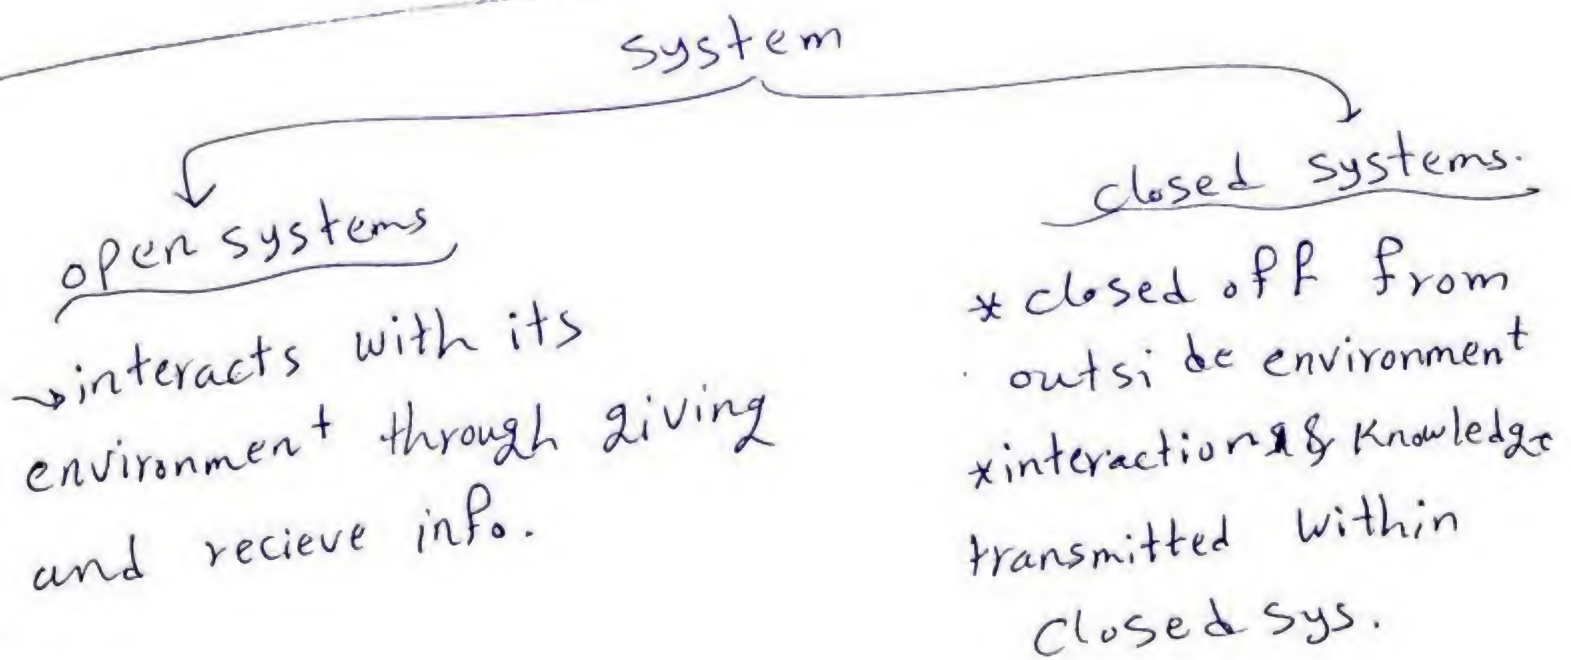 system
open systems
→interacts with its
environment through giving
and recieve info.
closed systems.
* closed off from
outside environment
* interactions & Knowledge
transmitted within
closed sys.